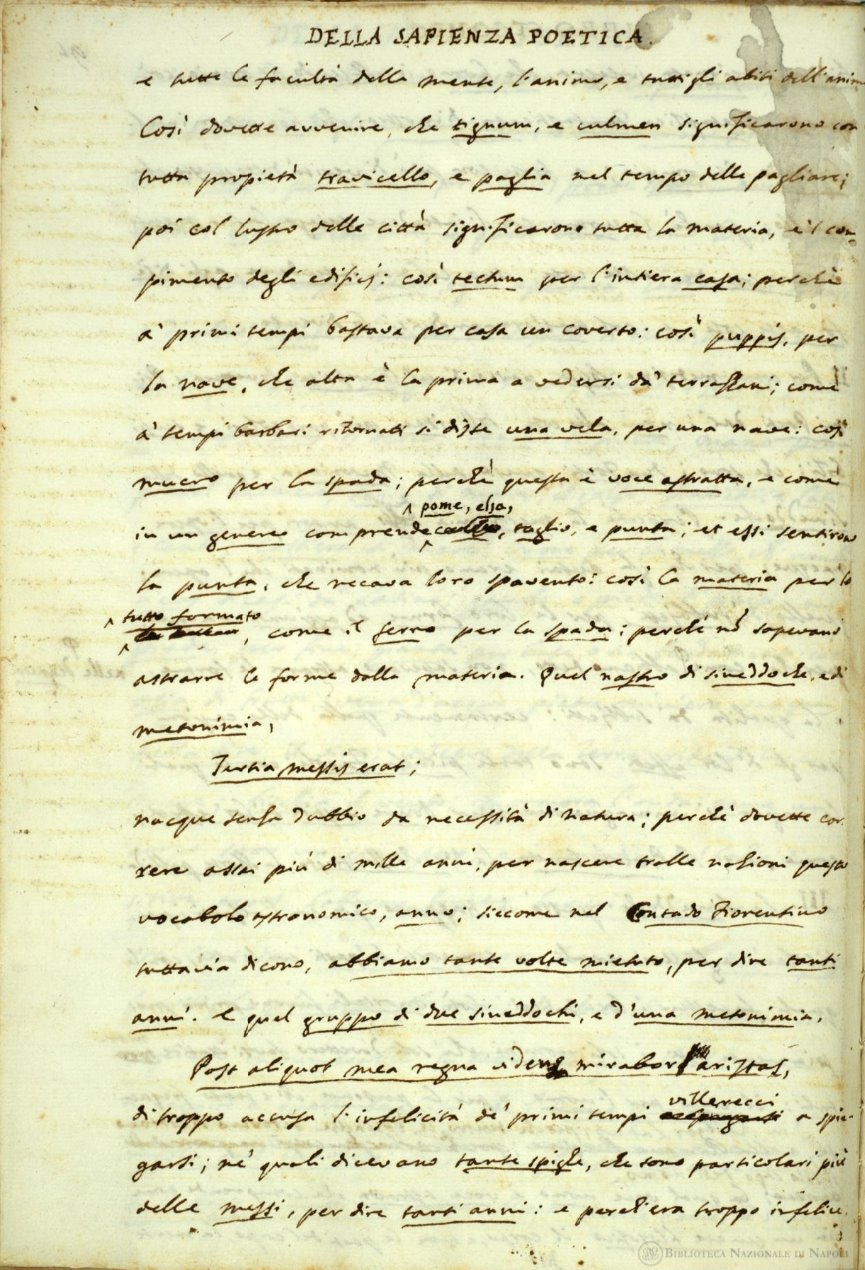 DELLA SAPIENZA POETICA.
e tutte le facultà della mente, l'animo, e tutti gli abiti dell'anim
Così dovette avvenire, che tignum, e culmen significarono con
tutta propietà travicello, e paglia nel tempo delle pagliare;
poi col lustro delle città significarono tutta la materia, e 'l com-
pimento degli edificj: così tectum per l'intiera casa; perchè
a' primi tempi bastava per casa un coverto: così puppis, per
la nave, che alta è la prima a vedersi da' terrazzani; come
a' tempi barbari ritornati si disse una vela, per una nave: così
mucro per la spada; perchè questa è voce astratta, e come
pome, elsa,
in un genere comprende, taglio, e punta; et essi sentirono
la punta, che recava loro spavento: così la materia per lo
tutto formato
, come il ferro per la spada; perchè nõ sapevano
astrarre le forme dalla materia. Quel nastro di sineddoche, e di
metonimia,
Tertia messis erat;
nacque senza dubbio da necessità di natura; perchè dovette cor-
rere assai più di mille anni, per nascere tralle nazioni questo
vocabolo astronomico, anno; siccome nel Contado Fiorentino
tuttavia dicono, abbiamo tante volte mietuto, per dire tanti
anni. e quel gruppo di due sineddochi, e d'una metonimia,
Post aliquot mea regna videns mirabor aristas,
villerecci
di troppo accusa l'infelicità de' primi tempi a spie-
garsi; ne' quali dicevano tante spighe, che sono particolari più
delle messi, per dire tanti anni: e perch'era troppo infelice
BIBLIOTECA NAZIONALE DI NAPOLI